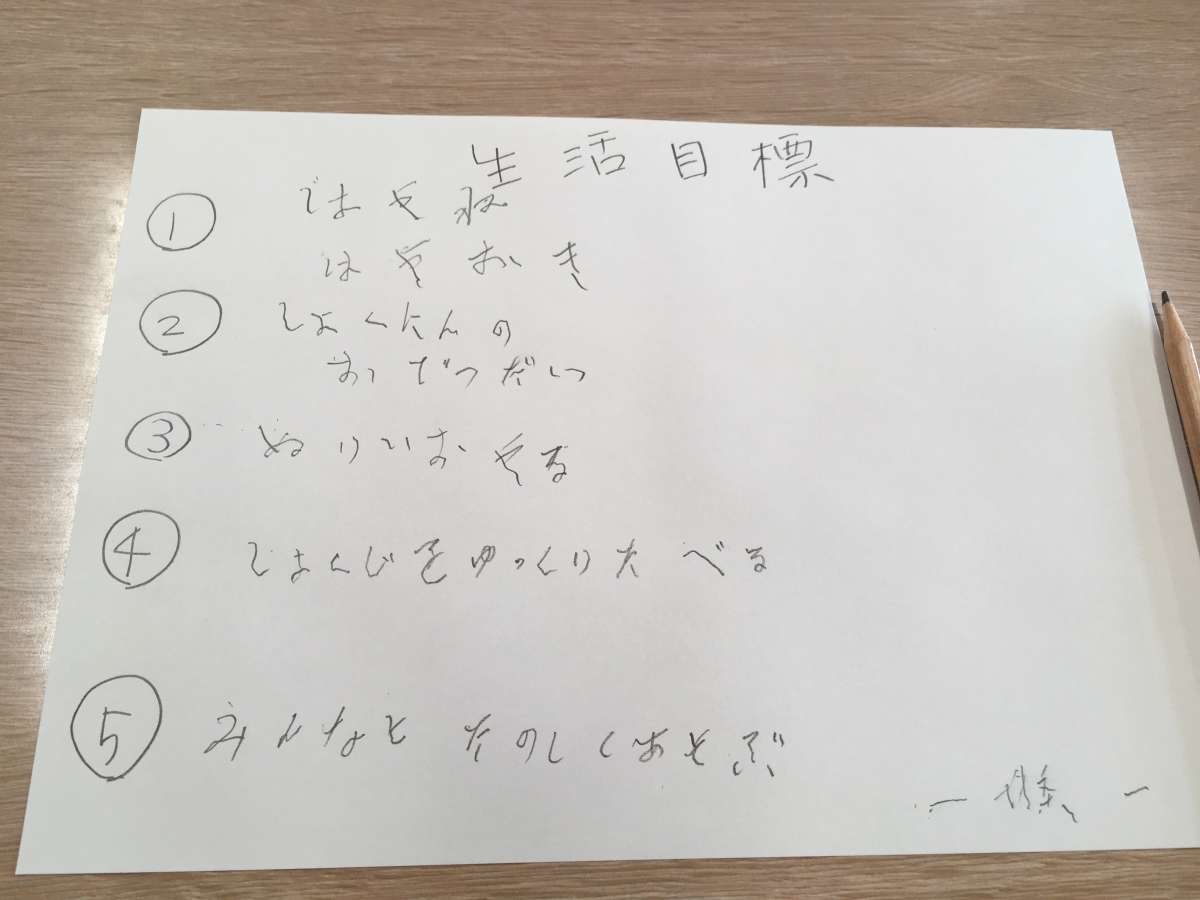 生活目標
① はやね
はやおき
② しょくたくの
おてつだい
③ ぬりいお やる
④ しょくじをゆっくりたべる
⑤ みんなと たのしくあそぶ